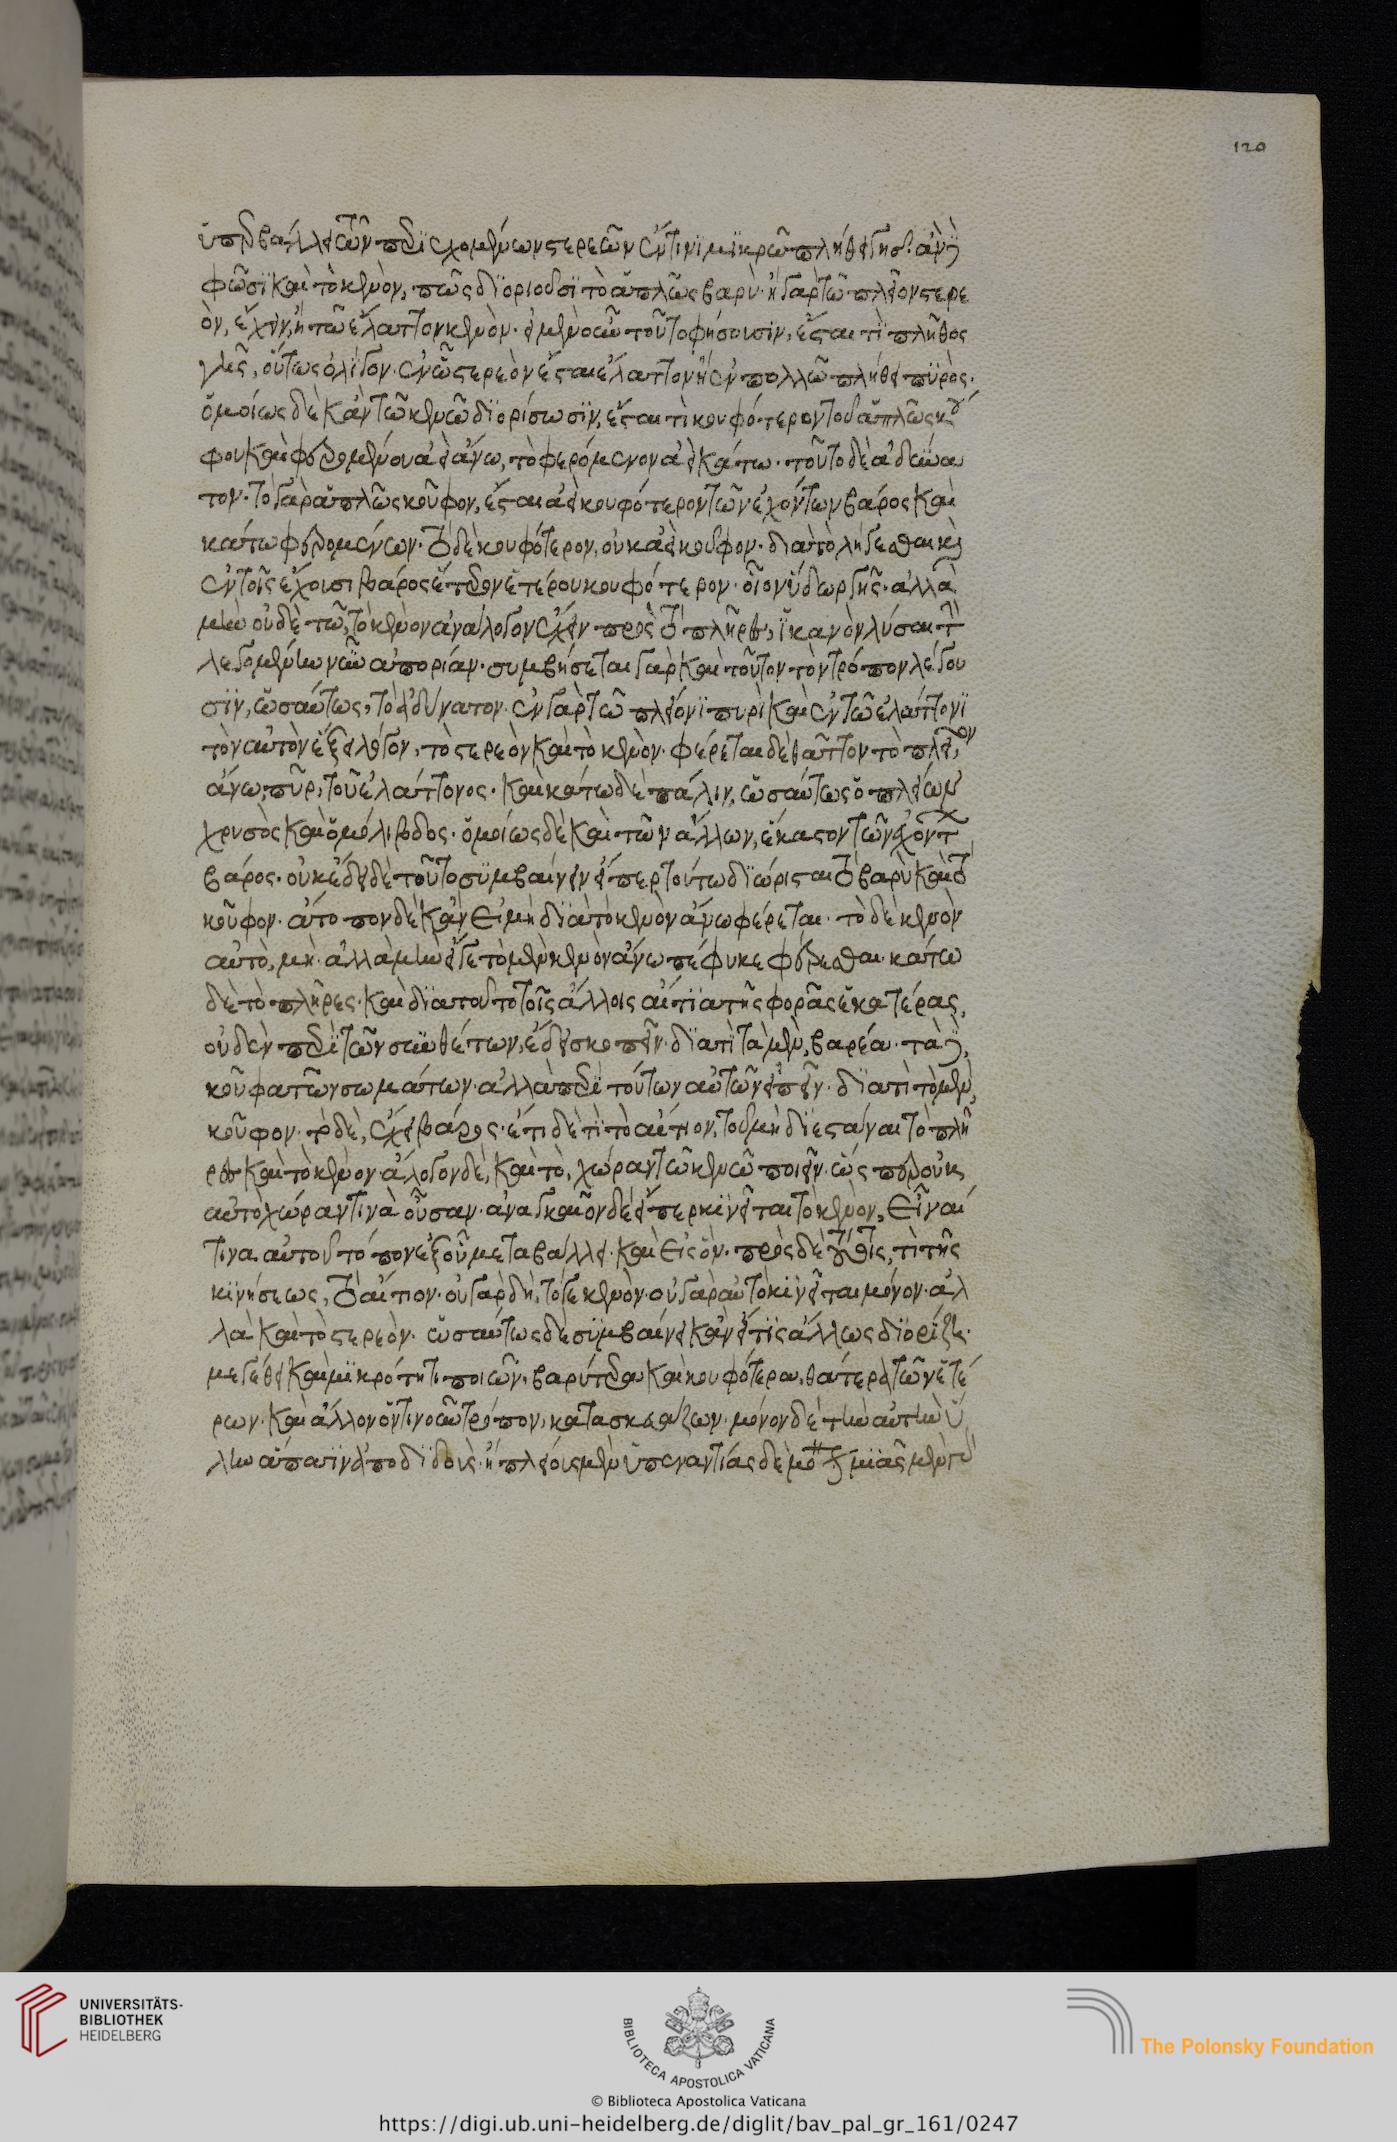 ὑπερβάλλει τῶν περιεχομένων στερεῶν ἔν τινι μικρῷ πλήθει γῆς· ἀν δὲ
φῶσι καὶ τὸ κενὸν, πῶς διοριοῦσι τὸ ἁπλῶς βαρὺ· ἢ γὰρ τῷ πλεῖον στερε
ὸν, ἔχειν, ἢ τῷ ἔλαττον κενὸν· εἰ μὲν οὖν τοῦτο φήσουσιν, ἔσται τὶ πλῆθος
γῆς, οὕτως ὀλίγον· ἐν ᾧ στερεὸν ἔσται ἔλαττον ἢ ἐν πολλῷ πλήθει πυρὸς·
ὁμοίως δὲ κἂν τῷ κενῷ διορίσωσιν, ἔσται τὶ κουφότερον τοῦ ἁπλῶς κού
φου καὶ φερομένου ἀεὶ ἄνω, τὸ φερόμενον ἀεὶ κάτω· τοῦτο δὲ ἀδύνα
τον· τὸ γὰρ ἁπλῶς κοῦφον, ἔσται ἀεὶ κουφότερον τῶν ἐχόντων βάρος καὶ
κάτω φερομένων· τὸ δὲ κουφότερον, οὐκ ἀεὶ κοῦφον· διὰ τὸ λέγεσθαι καὶ
ἐν τοῖς ἔχουσι βάρος ἕτερον ἑτέρου κουφότερον· οἷον ὕδωρ γῆς· ἀλλὰ
μὴν οὐδὲ τῷ, τὸ κενὸν ἀνάλογον ἔχειν πρὸς τὸ πλῆρες, ἱκανὸν λύσαι τὴν
λεγομένην νῦν ἀπορίαν· συμβήσεται γὰρ καὶ τοῦτον τὸν τρόπον λέγου
σιν, ὡσαύτως, τὸ ἀδύνατον· ἐν γὰρ τῷ πλείονι πυρὶ καὶ ἐν τῷ ἐλάττονι
τὸν αὐτὸν ἕξει λόγον, τὸ στερεὸν καὶ τὸ κενὸν· φέρεται δὲ θᾶττον τὸ πλεῖον
ἄνω, πῦρ, τοῦ ἐλάττονος· καὶ κάτω δὲ πάλιν, ὡσαύτως ὁ πλείων
χρυσὸς καὶ ὁ μόλιβδος· ὁμοίως δὲ καὶ τῶν ἄλλων, ἕκαστον τῶν ἐχόντων
βάρος· οὐκ ἔδει δὲ τοῦτο συμβαίνειν εἴπερ τούτω διώρισται τὸ βαρὺ καὶ τὸ
κοῦφον· ἄτοπον δὲ κἂν εἰ μὴ διὰ τὸ κενὸν ἄνω φέρεται· τὸ δὲ κενὸν
αὐτὸ, μὴ· ἀλλὰ μὴν εἴγε τὸ μὲν κενὸν ἄνω πέφυκε φέρεσθαι· κάτω
δὲ τὸ πλῆρες· καὶ διὰ τοῦτο τοῖς ἄλλοις αἴτια τῆς φορᾶς ἑκατέρας,
οὐδὲν περὶ τῶν συνθέτων, ἔδει σκοπεῖν· διατὶ τὰ μὲν, βαρέα· τὰ δὲ,
κοῦφα τῶν σωμάτων· ἀλλὰ περὶ τούτων αὐτῶν εἰπεῖν· διατὶ τὸ μὲν,
κοῦφον· τὸ δὲ, ἔχει βάρος· ἔτι δὲ τὶ τὸ αἴτιον, τοῦ μὴ διεστάναι τὸ πλῆ
ρες καὶ τὸ κενὸν ἄλογον δὲ, καὶ τὸ, χώραν τῷ κενῷ ποιεῖν· ὡς περ οὐκ
αὐτὸ χώραν τινὰ οὖσαν· ἀναγκαῖον δὲ εἴπερ κινεῖται τὸ κενὸν, εἶναί
τινα αὐτοῦ τόπον ἐξ οὗ μεταβάλλει· καὶ εἰς ὃν· πρὸς δὲ τούτοις, τὶ τῆς
κινήσεως, τὸ αἴτιον· οὐ γὰρ δὴ, τό γε κενὸν· οὐ γὰρ αὐτὸ κινεῖται μόνον· ἀλ
λὰ καὶ τὸ στερεὸν· ὡσαύτως δὲ συμβαίνει κἂν εἴ τις ἄλλως διορίζει·
μεγέθει καὶ μικρότητι ποιῶν, βαρύτερα καὶ κουφότερα, θάτερα τῶν ἑτέ
ρων· καὶ ἄλλον ὅντινα οὖν τρόπον, κατασκευάζων· μόνον δὲ τὴν αὐτὴν ὕ
λην ἅπασιν ἀποδιδοὺς· ἢ πλείους μὲν ὑπεναντίας δὲ μόνον· μιᾶς μὲν γὰρ
120
UNIVERSITÄTS-
BIBLIOTHEK
HEIDELBERG
BIBLIOTECA APOSTOLICA VATICANA
© Biblioteca Apostolica Vaticana
The Polonsky Foundation
https://digi.ub.uni-heidelberg.de/diglit/bav_pal_gr_161/0247